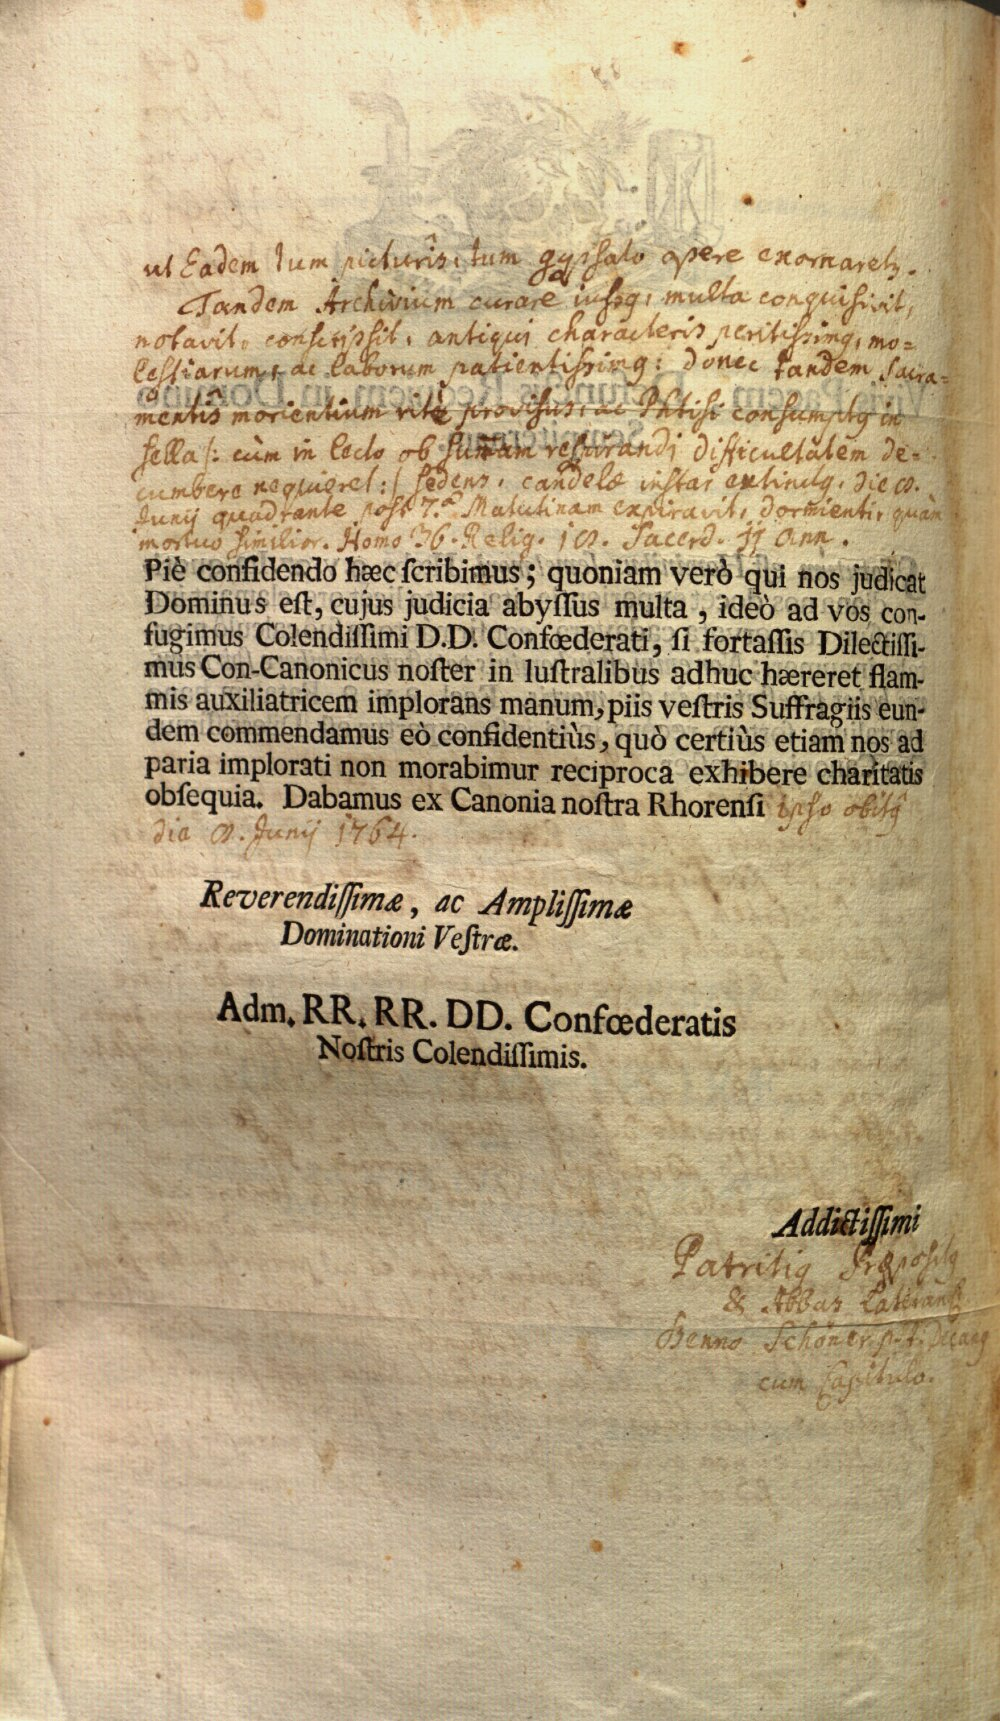 ut Eadem tum picturis, tum gypsato opere exornaretꝫ.
Tandem Archivium curare iussꝰ, multa conquisivit,
notavit, conscripsit, antiqui characteris peritissimꝰ, mo=
lestiarum, ac laborum patientissimꝰ: donec tandem Sacra=
mentis morientium ritè provisus, ac Phtisi consumptꝰ in
sella /: cùm in lecto ob sum̄am respirandi difficultatem de=
cumbere nequieret :/ sedens, candelæ instar extinctꝰ, die
Junij quadrante post 7.ᵃᵐ Matutinam expiravit, dormienti, quàm
mortuo similior. Homo 36. Relig. Sacerd. 11 ann.
Piè confidendo hæc ſcribimus; quoniam verò qui nos judicat
Dominus eſt, cujus judicia abyſſus multa, ideò ad vos con-
fugimus Colendiſſimi D.D. Confœderati, ſi fortaſſis Dilectiſſi-
mus Con-Canonicus noſter in luſtralibus adhuc hæreret flam-
mis auxiliatricem implorans manum, piis veſtris Suffragiis eun-
dem commendamus eò confidentiùs, quò certiùs etiam nos ad
paria implorati non morabimur reciproca exhibere charitatis
obſequia. Dabamus ex Canonia noſtra Rhorenſi ipso obitꝰ
die Junij 1764.
Reverendiſſimæ, ac Ampliſſimæ
Dominationi Veſtræ.
Adm. RR. RR. DD. Confœderatis
Noſtris Colendiſſimis.
Addictiſſimi
Patritiꝰ Præpositꝰ
& Abbas Lateranẽ
Benno Schöner p.t. Decanꝰ
cum Capitulo.